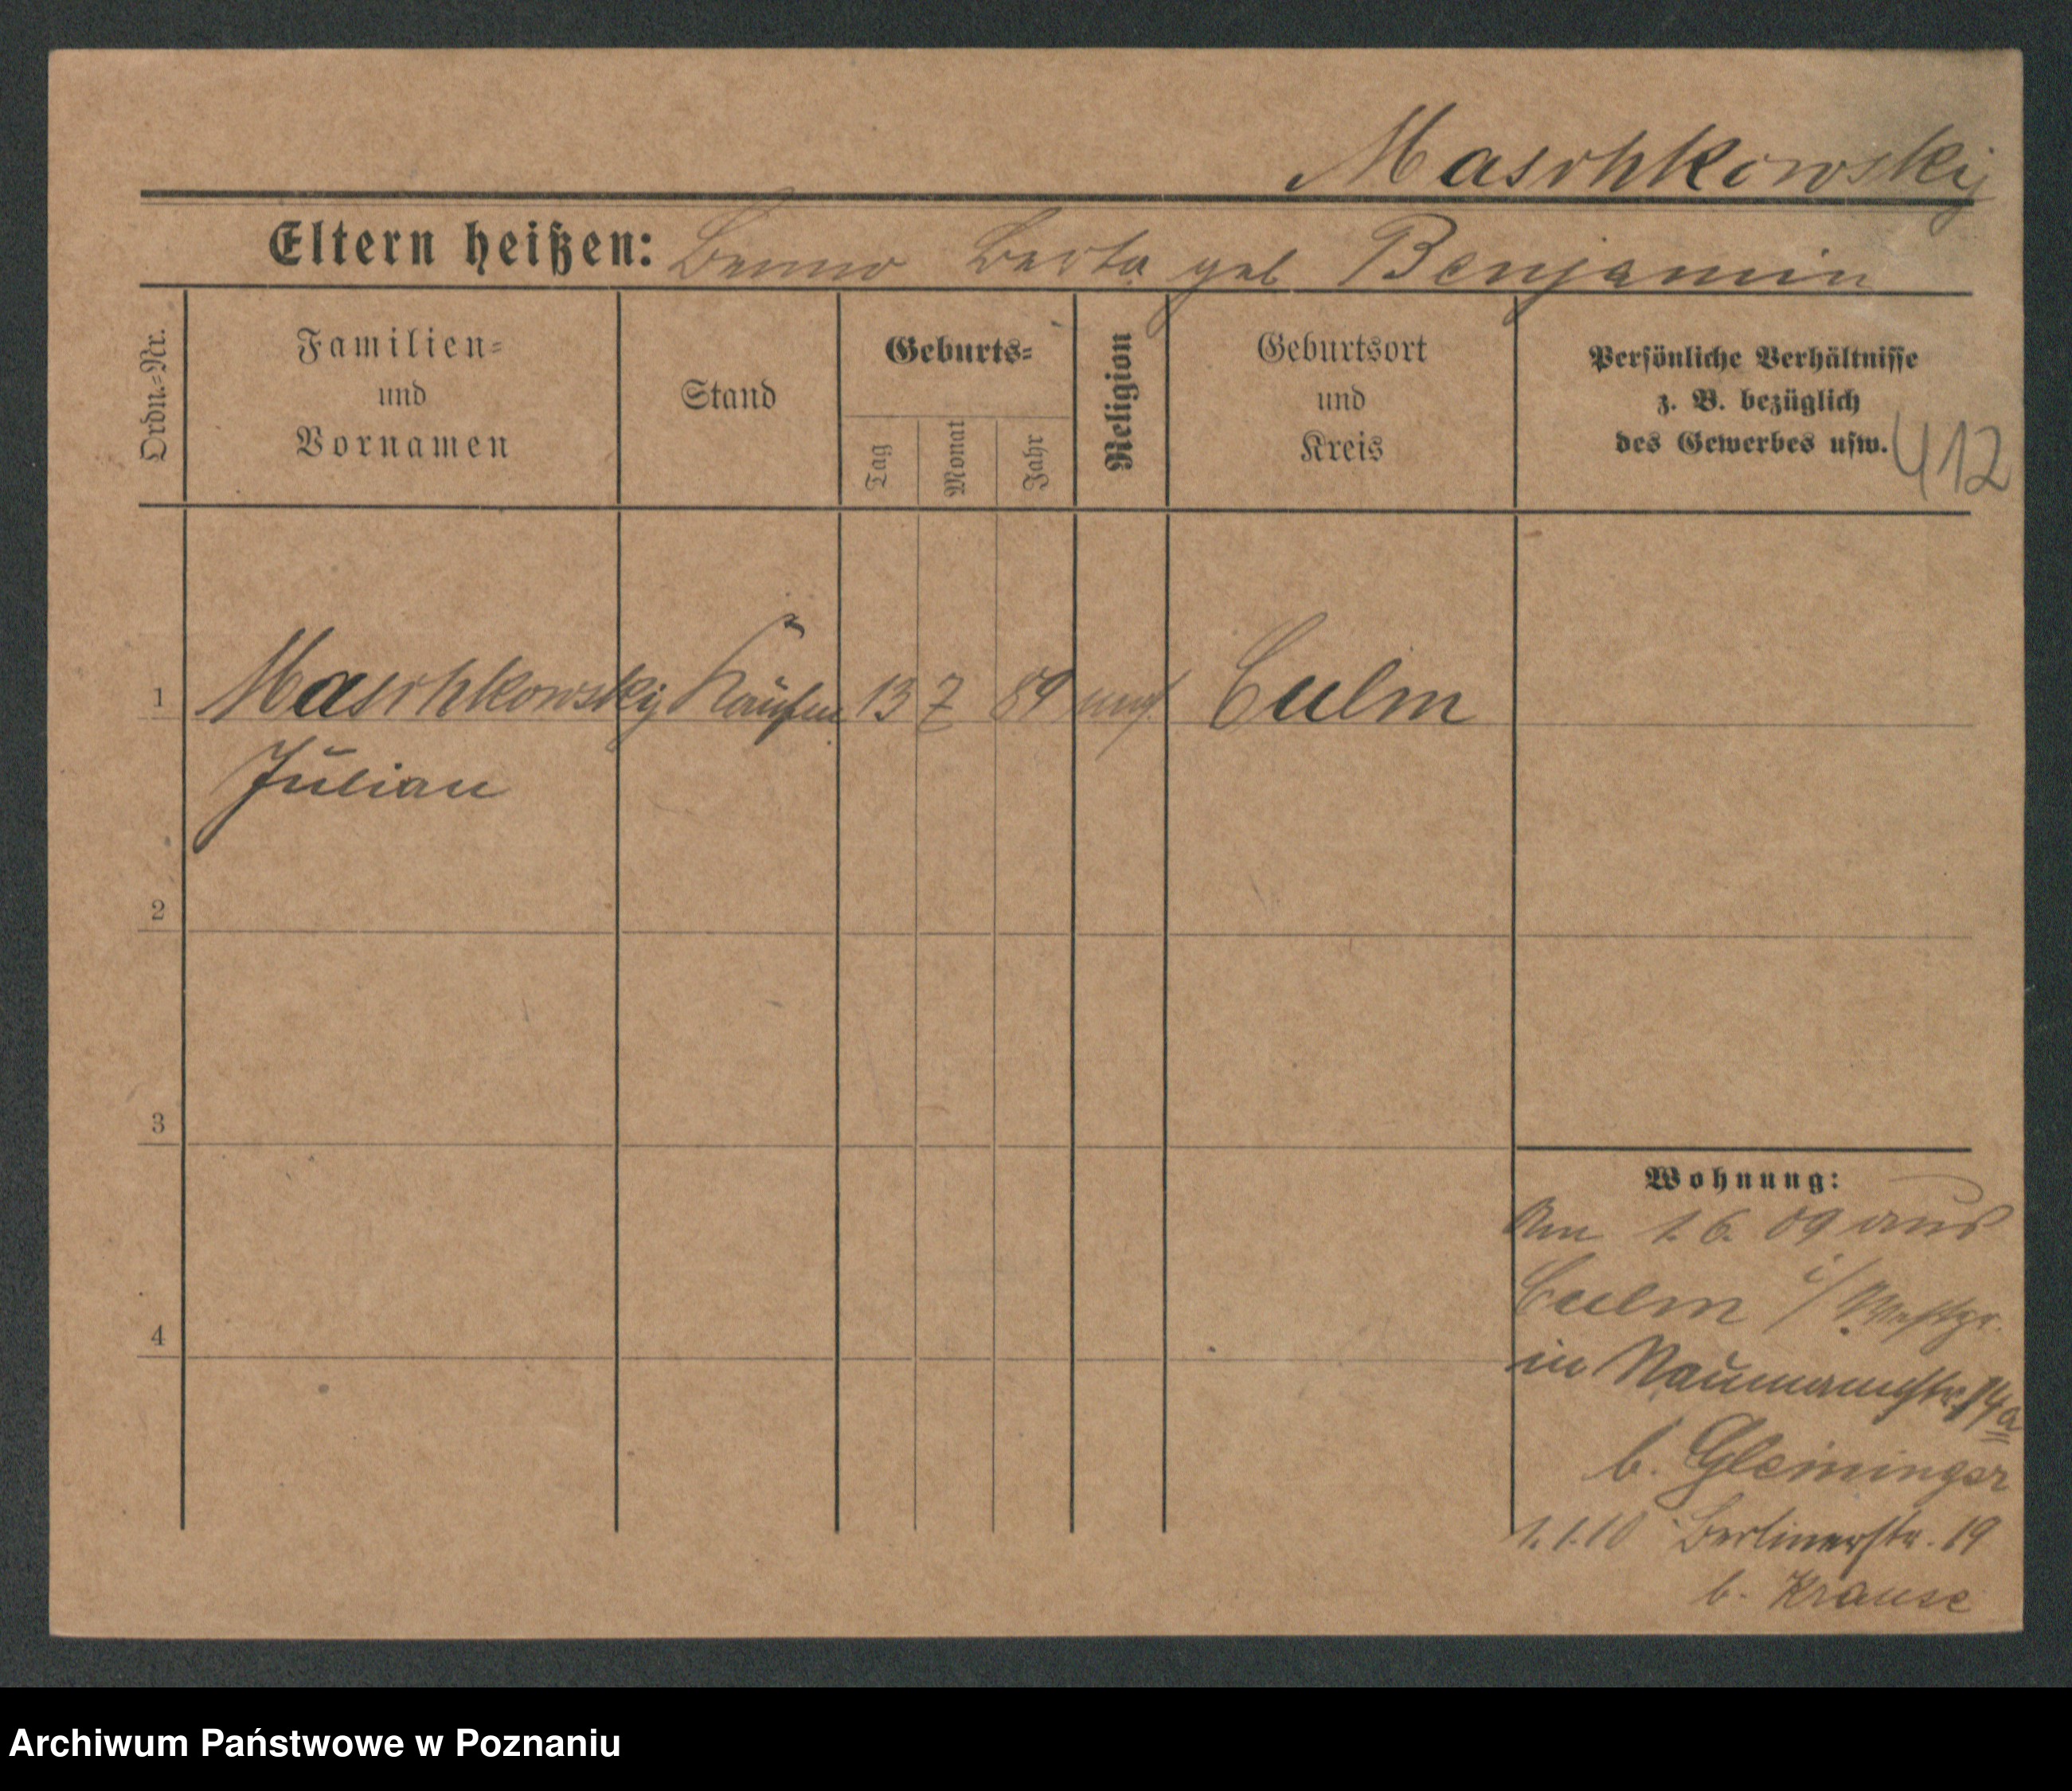 Maschkowsky
Eltern heißen: Benno Berta geb Benjamin
Ordn.-Nr.
Familien-
und
Vornamen
Stand
Geburts-
Tag
Monat
Jahr
Religion
Geburtsort
und
Kreis
Persönliche Verhältnisse
z. B. bezüglich
des Gewerbes usw.
412
1 Maschkowsky 13 7 89 Culm
Julian
2
3
4
Wohnung:
Am 1.6.09 aus
Culm i/Westpr.
in Naumannstr. 14a
b. Gleininger
1.1.10 Berlinerstr. 19
b. Krause
Archiwum Państwowe w Poznaniu